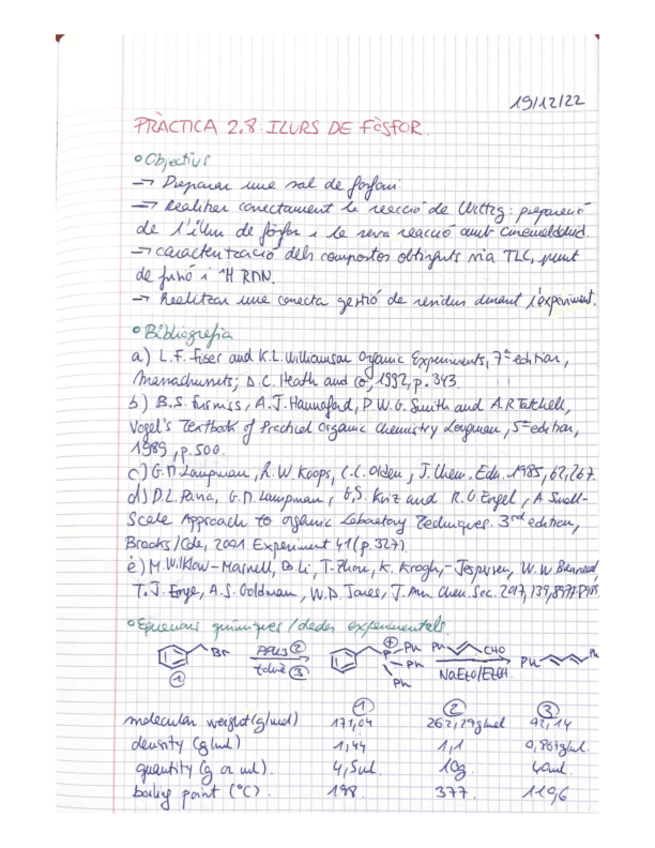 19/12/22
PRÀCTICA 2.8: ILURS DE FÒSFOR.
Objectius
→ Preparar una sal de fosfoni.
→ Realitzar correctament la reacció de Wittig: preparació
de l'ilur de fòsfor i la seva reacció amb cinamaldehid.
→ caracterització dels compostos obtinguts via TLC, punt
de fusió i ¹H RMN.
→ Realitzar una correcta gestió de residus durant l'experiment.
Bibliografia
a) L.F. Fiser and K.L. Williamson Organic Experiments, 7ª edition,
D.C. Heath and Co, 1992, p. 343.
b) B.S. Furniss, A.J. Hannaford, P.W.G. Smith and A.R Tatchell,
Vogel's Textbook of Practical Organic Chemistry Longman, 5ª edition,
1989, p. 500.
c) G.M Lampman, R.W. Koops, C.C. Olden, J. Chem. Edu. 1985, 62, 267.
d) D.L. Pavia, G.M. Lampman, G.S. Kriz and R.G Engel, A Small-
Scale Approach to organic Laboratory Techniques. 3rd edition,
Brooks/Cole, 2001 Experiment 41 (p. 327).
e) M. Wilklow-Marnell, B. Li, T. Zhou, K. Krogh-Jespersen, W.W Brennessel,
T.J. Emge, A.S. Goldman, W.D. Jones, J. Am. Chem. Soc. 2017, 139,
Equacions químiques / dades experimentals.
Br PPh3 ② toluè ③ ⊕ P Ph Ph Ph Ph CHO NaEtO/EtOH Ph Ph
①
① ② ③
molecular weight (g/mol) 171,04 262,29g/mol 92,14
density (g/ml) 1,44 1,1 0,867g/ml.
quantity (g or ml). 4,5ml 10g 40ml.
boiling point (°C). 198 377. 110,6